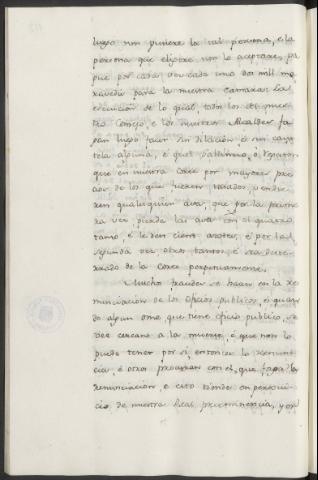 luego non pusiere la tal persona, e la
persona que elijere non lo aceptare, pa
gue por cada vegada una dos mil ma
ravedis para la nuestra camara: La
execucion de lo qual todo los del nues
tro Consejo, e los nuestros Alcaldes fa
gan luego facer sin dilacion é sin cau
tela alguna, é qual gallinero, ó regaton
que en nuestra corte por mayores pre
cios de los que fueren tasados, vendie
ren qualesquier aves, que por la prime
ra vez pierda las aves con el quatro
tanto, é le den cient azotes, é por la
segunda vez otros tantos, é sea dester
rado de la Corte perpetuamente.
Muchos fraudes se hacen en la re
nunciacion de los oficios publicos, é quan
do algun ome que tiene oficio publico, se
vee cercano a la muerte, é que non lo
puede tener por si, entonces lo renun
cia, é otros procuran con él, que faga la
renunciacion, e esto dende en perjui
cio de nuestra Real preeminencia, y en